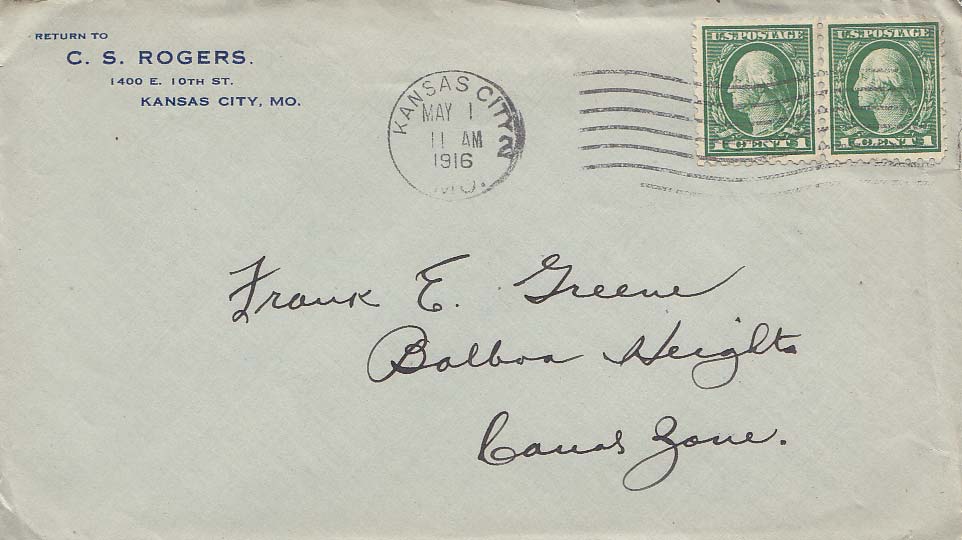 RETURN TO
C. S. ROGERS.
1400 E. 10TH ST.
KANSAS CITY, MO.
KANSAS CITY 2
MAY 1
11 AM
1916
MO.
U.S. POSTAGE
1 CENT 1
U.S. POSTAGE
1 CENT 1
Frank E. Greene
Balboa Heights
Canal Zone.